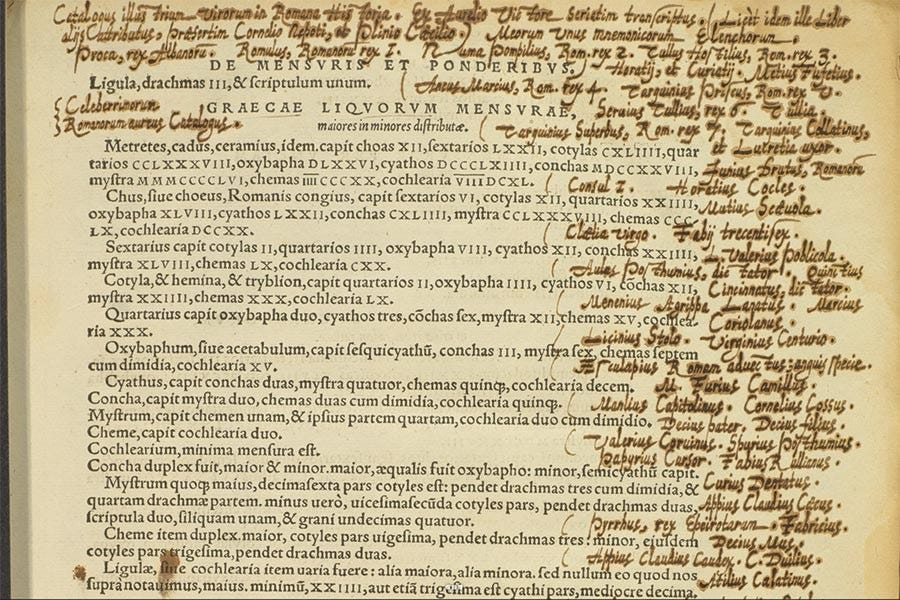 Catalogus illustrium virorum in Romana Historia. Ex Aurelio Victore seriatim transcriptus. (Licèt idem ille Liber
alijs attributus, præsertim Cornelio Nepoti, et Plinio Cæcilio.) Meorum Unus mnemonicorum Elenchorum.
Proca, rex Albanorū. Romulus, Romanorū rex 1. Numa Pompilius, Rom. rex 2. Tullus Hostilius, Rom. rex 3.
DE MENSVRIS ET PONDERIBVS.
Horatij, et Curiatij. Metius Fufetius.
Ligula, drachmas III, & scriptulum unum.
Ancus Marcius, Rom. rex 4. Tarquinius Priscus, Rom. rex V.
Celeberrimorum
Romanorum aureus Catalogus.
GRAECAE LIQVORVM MENSVRAE,
Seruius Tullius, rex 6. Tullia.
maiores in minores distributæ.
Tarquinius Superbus, Rom. rex 7. Tarquinius Collatinus,
et Lucretia uxor.
Metretes, cadus, ceramius, idem. capit choas XII, sextarios LXXII, cotylas CXLIIII, quar
tarios CCLXXXVIII, oxybapha DLXXVI, cyathos DCCCLXIIII, conchas MDCCXXVIII,
Junius Brutus, Romanorū
mystra MMMCCCCLVI, chemas IIIICCCXX, cochlearia VIIIDCXL.
Consul 1. Horatius Cocles.
Chus, siue choeus, Romanis congius, capit sextarios VI, cotylas XII, quartarios XXIIII,
Mutius Scæuola.
oxybapha XLVIII, cyathos LXXII, conchas CXLIIII, mystra CCLXXXVIII, chemas CCC
LX, cochlearia DCCXX.
Clælia virgo. Fabij trecenti sex.
Sextarius capit cotylas II, quartarios IIII, oxybapha VIII, cyathos XII, conchas XXIIII,
L. Valerius Poblicola.
mystra XLVIII, chemas LX, cochlearia CXX.
Aulus Posthumius, dictator. Quintius
Cotyla, & hemina, & tryblion, capit quartarios II, oxybapha IIII, cyathos VI, cochas XII,
Cincinnatus, dictator.
mystra XXIIII, chemas XXX, cochlearia LX.
Menenius Agrippa Lanatus. Marcius
Quartarius capit oxybapha duo, cyathos tres, cōchas sex, mystra XII, chemas XV, cochlea-
Coriolanus.
ria XXX.
Licinius Stolo. Virginius Centurio.
Oxybaphum, siue acetabulum, capit sesquicyathū, conchas III, mystra sex, chemas septem
cum dimidia, cochlearia XV.
Æsculapius Romam aduectus: anguis specie.
Cyathus, capit conchas duas, mystra quatuor, chemas quinq;, cochlearia decem.
M. Furius Camillus.
Concha, capit mystra duo, chemas duas cum dimidia, cochlearia quinq;.
Manlius Capitolinus. Cornelius Cossus.
Mystrum, capit chemen unam, & ipsius partem quartam, cochlearia duo cum dimidio.
Decius pater. Decius filius.
Cheme, capit cochlearia duo.
Valerius Coruinus. Spurius Posthumius.
Cochlearium, minima mensura est.
Papyrius Cursor. Fabius Rullianus.
Concha duplex fuit, maior & minor. maior, æqualis fuit oxybapho: minor, semicyathū capit.
Mystrum quoq; maius, decimasexta pars cotyles est: pendet drachmas tres cum dimidia, &
Curius Dentatus.
quartam drachmæ partem. minus uerò, uicesimasecūda cotyles pars, pendet drachmas duas,
Appius Claudius Cæcus.
scriptula duo, siliquam unam, & grani undecimas quatuor.
Pyrrhus, rex Epeirotarum. Fabricius.
Cheme item duplex. maior, cotyles pars uigesima, pendet drachmas tres: minor, eiusdem
Decius Mus.
cotyles pars trigesima, pendet drachmas duas.
Appius Claudius Caudex. C. Duilius.
Ligulæ, siue cochlearia item uaria fuere: alia maiora, alia minora. sed nullum eo quod nos
Atilius Calatinus.
supra notauimus, maius. minimū, XXIIII, aut etiā trigesima est cyathi pars, mediocre decima.